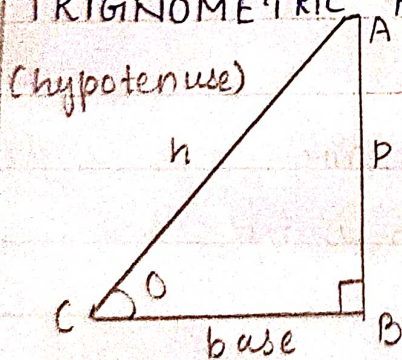 TRIGINOMETRIC
A
(hypotenuse)
h
P
θ
C
base
B